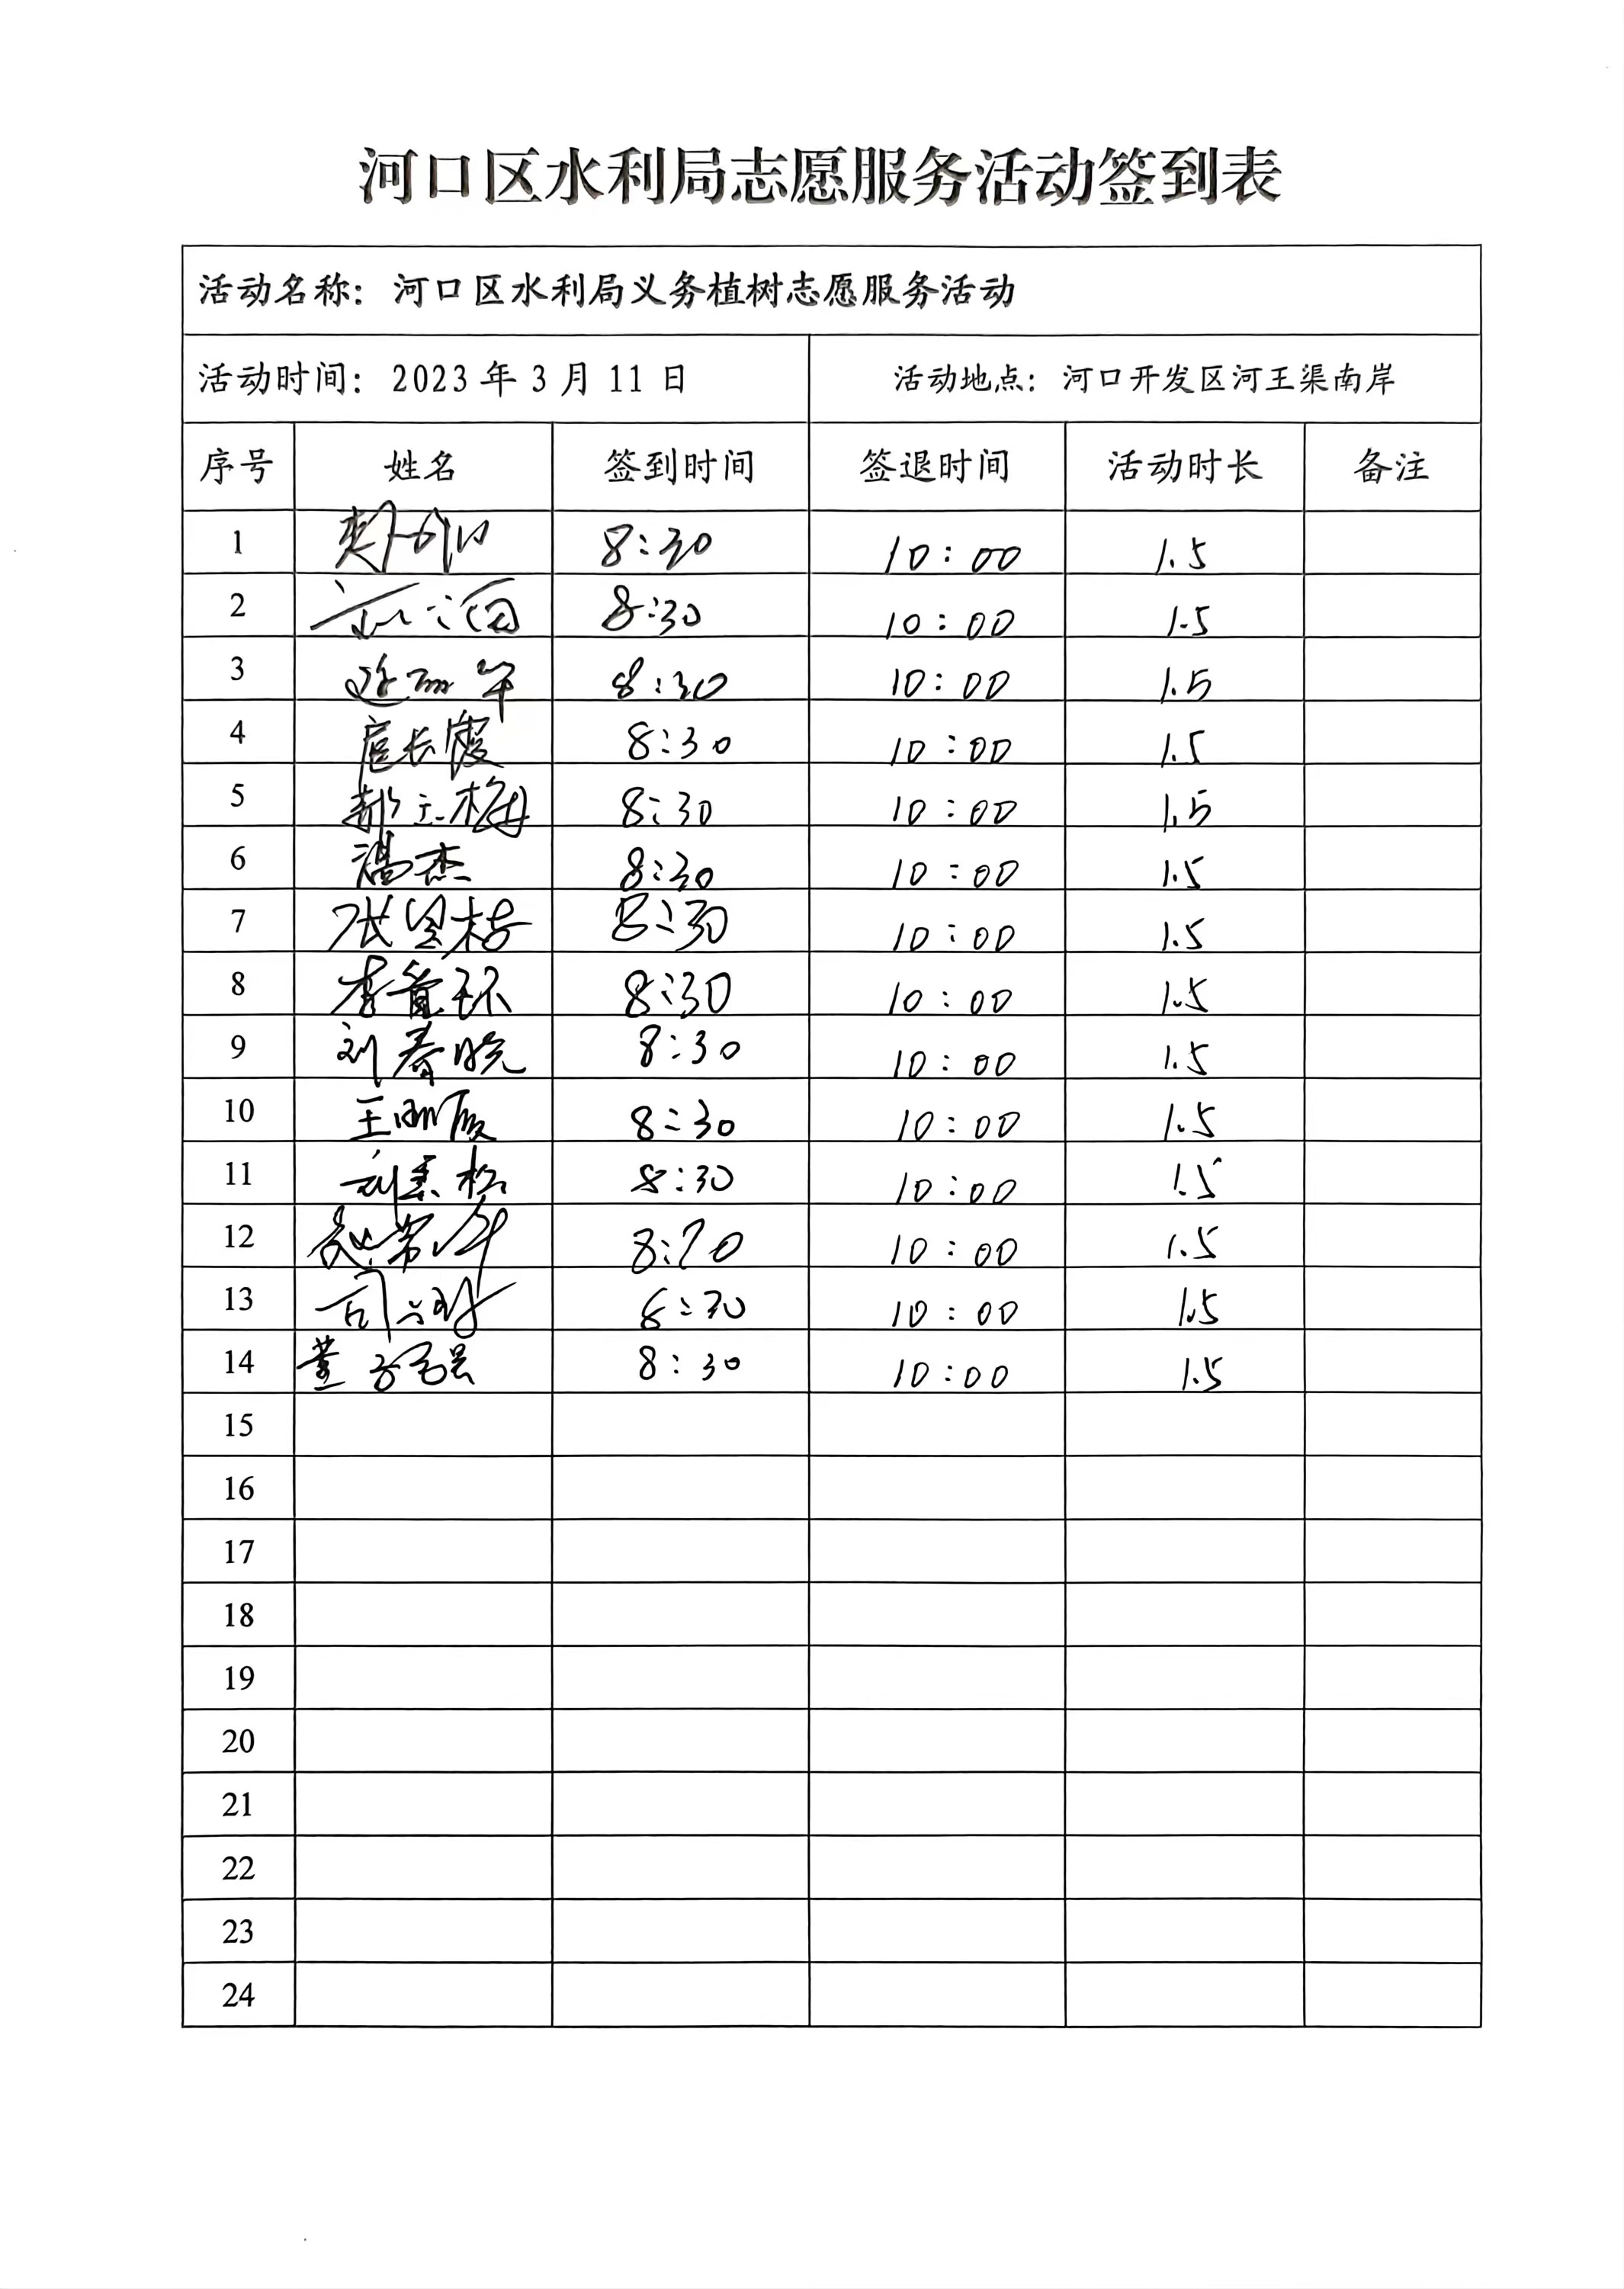 河口区水利局志愿服务活动签到表
活动名称：河口区水利局义务植树志愿服务活动
活动时间：2023年3月11日 活动地点：河口开发区河王渠南岸
序号 姓名 签到时间 签退时间 活动时长 备注
1 8:30 10:00 1.5
2 8:30 10:00 1.5
3 8:30 10:00 1.5
4 扈长霞 8:30 10:00 1.5
5 8:30 10:00 1.5
6 8:30 10:00 1.5
7 张 8:30 10:00 1.5
8 李 环 8:30 10:00 1.5
9 刘春晓 8:30 10:00 1.5
10 王丽霞 8:30 10:00 1.5
11 刘 松 8:30 10:00 1.5
12 8:30 10:00 1.5
13 8:30 10:00 1.5
14 董 8:30 10:00 1.5
15
16
17
18
19
20
21
22
23
24